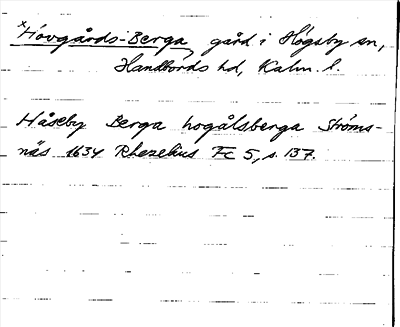 ×Hovgårds-Berga, gård i Högsby sn,
Handbords hd, Kalm. l.
Håseby Berga hogålsberga Ströms-
näs 1634 Rhezelius Fc 5, s. 137.